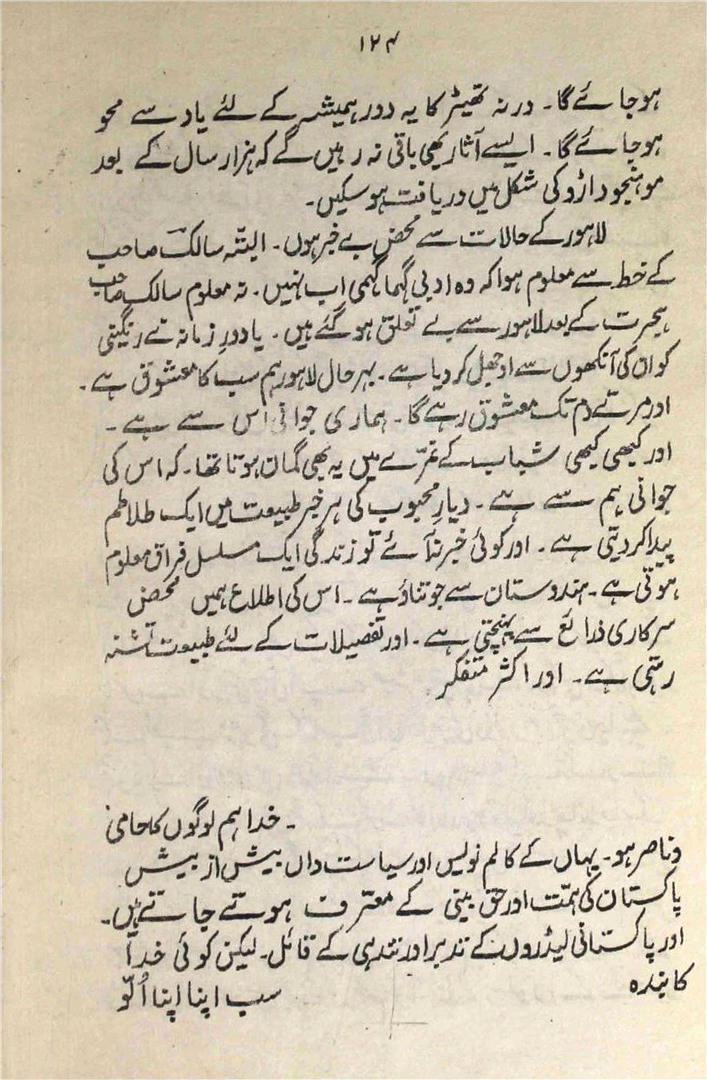 ۱۲۴
ہوجائے گا۔ درنہ تھیٹر کا یہ دور ہمیشہ کے لئے یاد سے محو
ہوجائے گا۔ ایسے آثار بھی باقی نہ رہیں گے کہ ہزار سال کے بعد
موہنجوداڑو کی شکل میں دریافت ہوسکیں۔
لاہور کے حالات سے محض بے خبر ہوں۔ البتّہ سالکؔ صاحب
کے خط سے معلوم ہوا کہ وہ ادبی گہما گہمی اب نہیں۔ نہ معلوم سالک صاحب
ہجرت کے بعد لاہور سے بے تعلق ہوگئے ہیں۔ یا دورِ زمانہ نے رنگینی
کو ان کی آنکھوں سے اوجھل کردیا ہے۔ بہرحال لاہور ہم سب کا معشوق ہے۔
اور مرتے دم تک معشوق رہے گا۔ ہماری جوانی اُس سے ہے۔
اور کبھی کبھی شباب کے غرّے میں یہ بھی گمان ہوتا تھا۔ کہ اس کی
جوانی ہم سے ہے۔ دیارِ محبوب کی ہر خبر طبیعت میں ایک طلاطم
پیدا کردیتی ہے۔ اور کوئی خبر نہ آئے تو زندگی ایک مسلسل فراق معلوم
ہوتی ہے۔ ہندوستان سے جو تناؤ ہے۔ اس کی اطلاع ہمیں محض
سرکاری ذرائع سے پہنچتی ہے۔ اور تفصیلات کے لئے طبیعت تشنہ
رہتی ہے۔ اور اکثر متفکر
۔ خدا ہم لوگوں کا حامی
و ناصر ہو۔ یہاں کے کالم نویس اور سیاست داں بیش از بیش
پاکستان کی ہمّت اور حق بینی کے معترف ہوتے جاتے ہیں۔
اور پاکستانی لیڈروں کے تدبر اور تندہی کے قائل۔ لیکن کوئی خدا
کا بندہ سب اپنا اپنا اُلّو